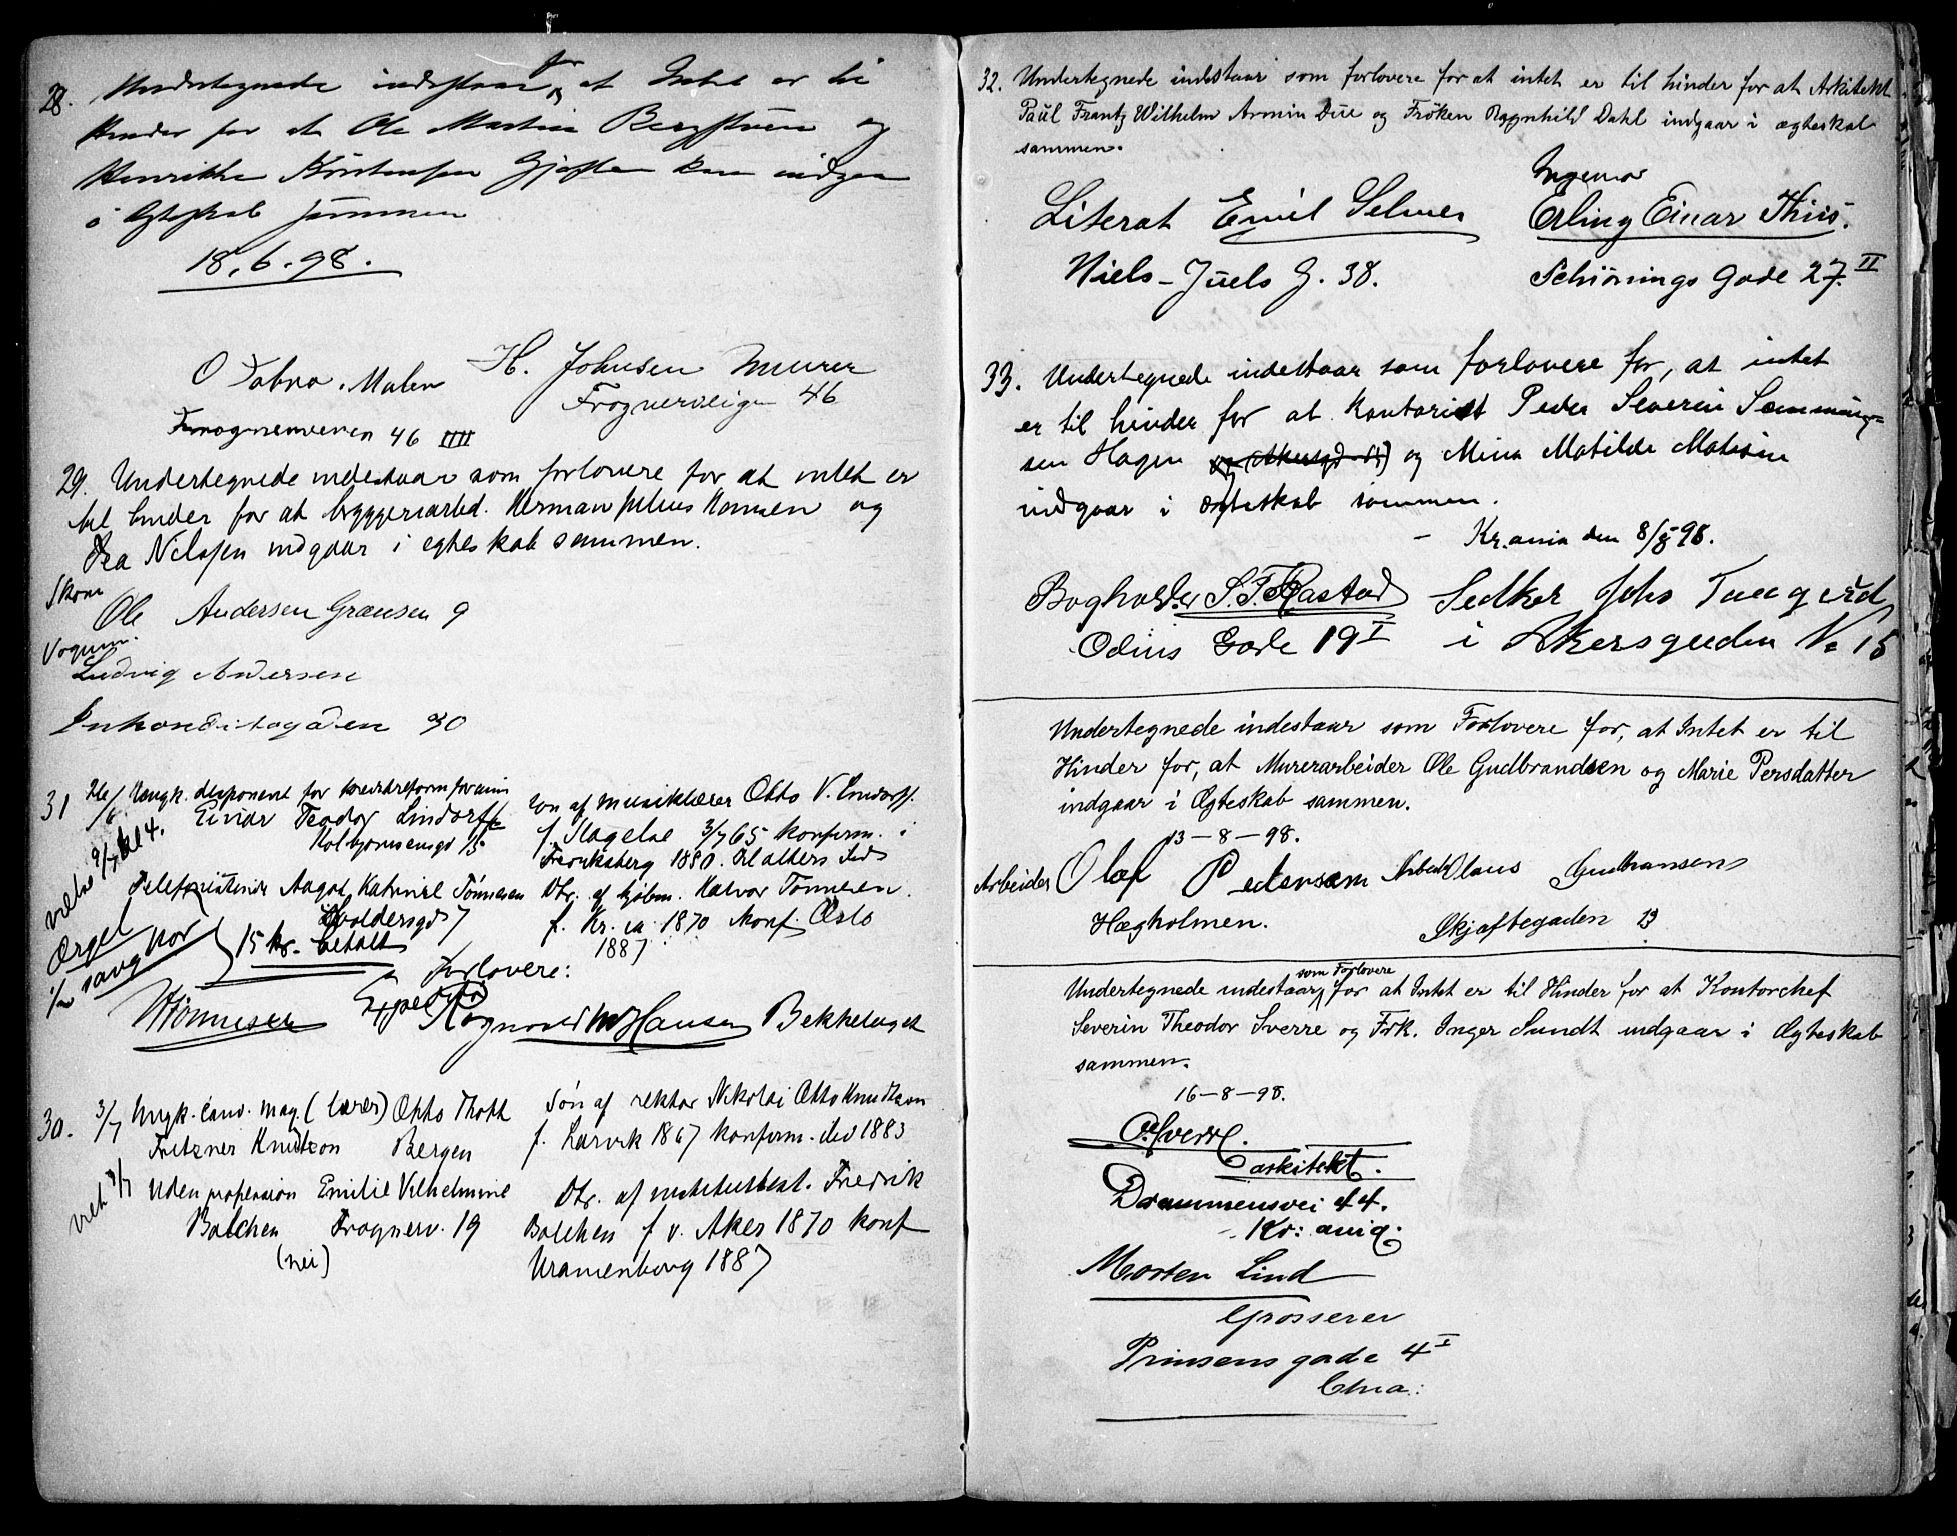 28. Undertegnede indestaar for at Intet er til
Hinder for at Ole Martin Bergstrøm og
Henrikke Kristensen Gjøsten kan indgaa
i Ægteskab sammen
18.6.98.
H. Johnsen Murer
Frognerveigen 46
O Maler
46 IIII
29. Undertegnede indestaar som forlovere for at intet er
til hinder for at bryggeriarbd. Herman Julius Hansen og
Nilssen indgaar i egteskab sammen.
Skom
Ole Andersen Grænsen 9
Vognm.
Ludvig Andersen
30
31 26/6 Ungk. disponent for
Einar Teodor Lindorff
Kolbjørnsensgd 15
Aagot Katrine Tønnesen
Holdersgd 7
15 kr. betalt
søn af musiklærer Otto V. Lindorff.
f. Slagelse 3/7 65 konfirm. i
Fredriksberg 1880.
Dtr. af Halvor Tønnesen.
f. Kr.a 1870 konf. Oslo
1887
viet 9/7 kl 4.
Orgel
1/2 sang kor
Forlovere:
Tønnesen
Ragnvald M Hansen Bekkelaget
30. 3/7 Ungk. cand. mag. (lærer) Otto Thott
Fritzner Knudtzon Bergen
Uden profession Emilie Vilhelmine
Balchen Frognerv. 19
(nei)
Søn af rektor Nikolai Otto Knudtzon
f. Larvik 1867 konfirm. ibd 1883
Dtr. af institutbest. Fredrik
Balchen f v. Aker 1870 konf
Uranienborg 1887
32. Undertegnede indstaar som forlovere for at intet er til hinder for at Arkitekt
Paul Frantz Wilhelm Armin Due og Frøken Ragnhild Dahl indgaar i ægteskab
sammen.
Literat Emil Selmer
Niels-Juels G. 38.
Ingeniør
Erling Einar Thiis.
Schiönings Gade 27. II
33. Undertegnede indestaar som forlovere for, at intet
er til hinder for at kontorist Peder Severin Semming-
sen Hagen og Mina Matilde Matisen
indgaar i ægteskab sammen.
- Kr.ania den 8/8 98.
Bogholder S. F. Rastad
Odins Gade 19 I
Johs
i Akersgaden No 15
Undertegnede indestaar som Forlovere for, at Intet er til
Hinder for, at Murerarbeider Ole Gudbrandsen og Marie Persdatter
indgaar i Ægteskab sammen.
13-8-98.
Arbeider Olaf Pedersen
Hægholmen.
Claus Gudbransen
Skjaftegaden 13
Undertegnede indestaar som Forlovere for at Intet er til Hinder for at Kontorchef
Severin Theodor Sverre og Frk. Inger Sundt indgaar i Ægteskab
sammen.
16-8-98.
O. Sverre.
arkitekt.
Drammensvei 44.
Kr: ania.
Morten Lind
Grosserer
Prinsens gade 4 I
Chra: